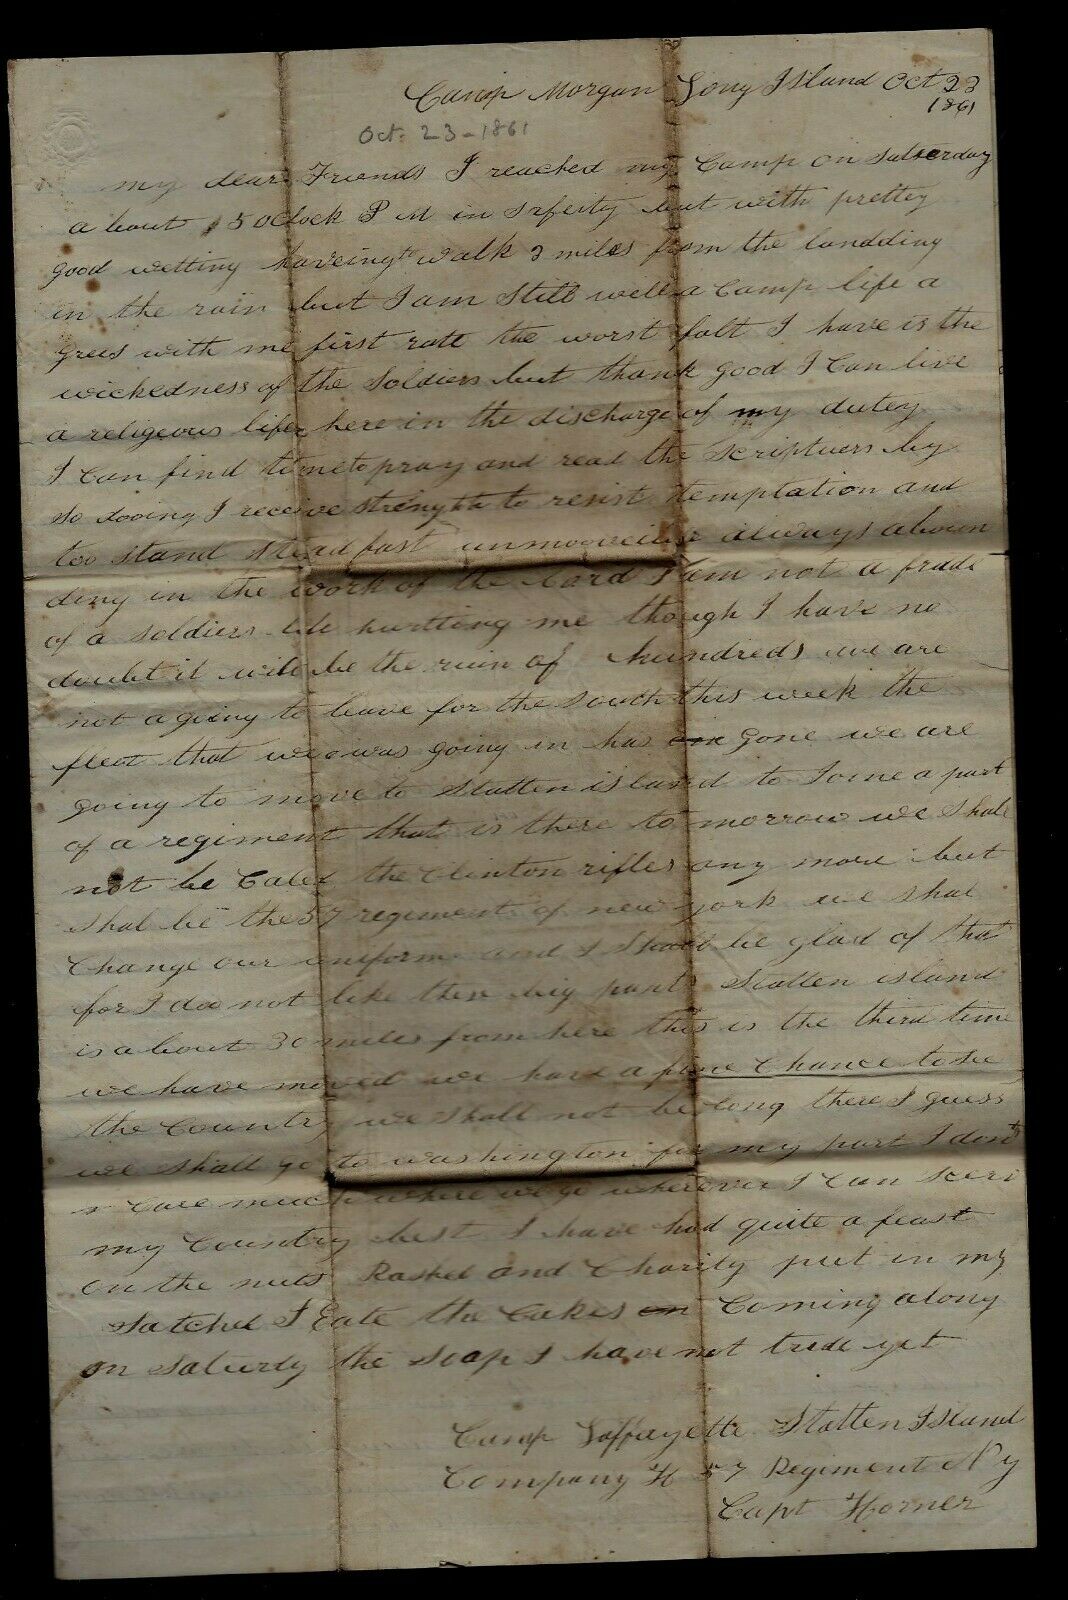 Camp Morgan Long Island Oct 23
1861
Oct. 23-1861
my dear Friends I reached my Camp on Satserday
a bout 5 oclock P M in safeity but with prettey
good wetting haveing to walk 2 miles from the landding
in the rain but I am still well a Camp life a
grees with me first rate the worst falt I have is the
wickedness of the Soldiers but thank good I Can live
a religeous life here in the discharge of my dutey
I Can find time to pray and read the Scriptuers by
so dooing I receive strenghth to resist temptation and
too stand steadfast unmooveible always aboun
ding in the work of the Lord I am not a frade
of a soldiers life hurtting me though I have no
doubt it will be the ruin of hundreds we are
not a going to leave for the South this week the
fleet that we was going in has gone we are
going to move to Statten island to Joine a part
of a regiment that is there to morrow we Shall
not be Caled the Clinton rifles any more but
shal be the 57 regiment of new york we shal
Change our uniform and I Should be glad of that
for I doo not like these big pants Statten island
is a bout 30 miles from here this is the third time
we have moved we have a fine Chance to See
the Country we Shall not be long there I guess
we shall go to washington for my part I dont
Care much where we go wherever I Can Serv
my Country best I have had quite a feast
on the nuts Rashel and Charity put in my
Satchel I Eate the Cakes Coming along
on Saturdy the Soap I have not tride yet
Camp Laffayette Statten Island
Company H 57 Regiment N y
Capt Horner